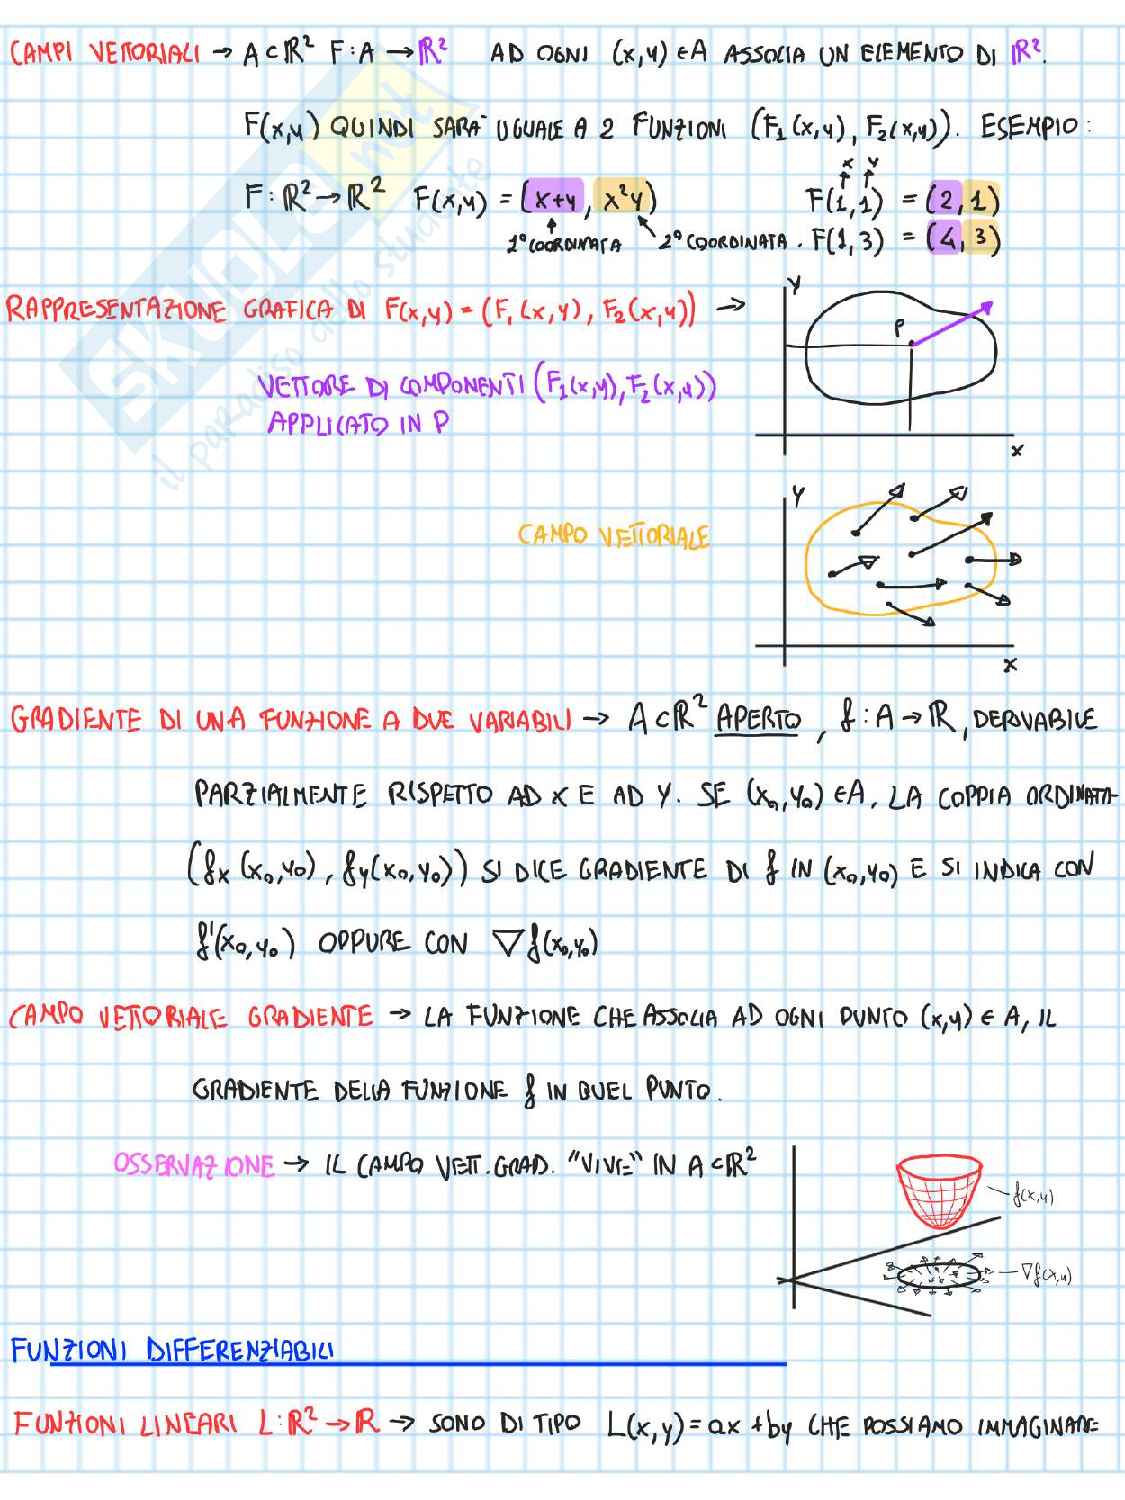 CAMPI VETTORIALI → A⊂ℝ² F:A → ℝ² AD OGNI (x,y) ∈A ASSOCIA UN ELEMENTO DI ℝ².
F(x,y) QUINDI SARA' UGUALE A 2 FUNZIONI (F₁(x,y), F₂(x,y)). ESEMPIO:
x y
F: ℝ² → ℝ² F(x,y) = (x+y, x²y) F(1,1) = (2,1)
1ª COORDINATA 2ª COORDINATA. F(1,3) = (4,3)
RAPPRESENTAZIONE GRAFICA DI F(x,y) = (F₁(x,y), F₂(x,y)) →
y
P
VETTORE DI COMPONENTI (F₁(x,y), F₂(x,y))
APPLICATO IN P
x
y
CAMPO VETTORIALE
x
GRADIENTE DI UNA FUNZIONE A DUE VARIABILI → A⊂ℝ² APERTO, f:A → ℝ, DERIVABILE
PARZIALMENTE RISPETTO AD X E AD Y. SE (x₀,y₀) ∈A, LA COPPIA ORDINATA
(fx (x₀,y₀), fy(x₀,y₀)) SI DICE GRADIENTE DI f IN (x₀,y₀) E SI INDICA CON
f'(x₀,y₀) OPPURE CON ∇f(x₀,y₀)
CAMPO VETTORIALE GRADIENTE → LA FUNZIONE CHE ASSOCIA AD OGNI PUNTO (x,y) ∈ A, IL
GRADIENTE DELLA FUNZIONE f IN QUEL PUNTO.
OSSERVAZIONE → IL CAMPO VETT. GRAD. "VIVE" IN A⊂ℝ²
f(x,y)
∇f(x,y)
FUNZIONI DIFFERENZIABILI
FUNZIONI LINEARI L: ℝ² → ℝ → SONO DI TIPO L(x,y) = ax + by CHE POSSIAMO IMMAGINARE
SKUOLA.net
il paradiso dello studente